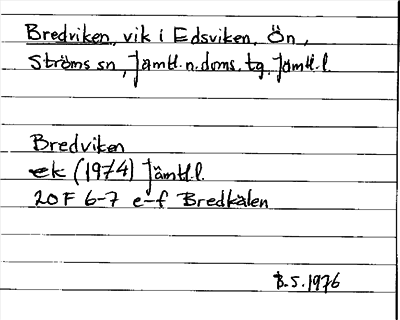 Bredviken, vik i Edsviken, Ön,
Ströms sn, Jämtl.n.doms.tg, Jämtl.l.
Bredviken
ek (1974) Jämtl.l.
20 F 6-7 e-f Bredkälen
B.S. 1976